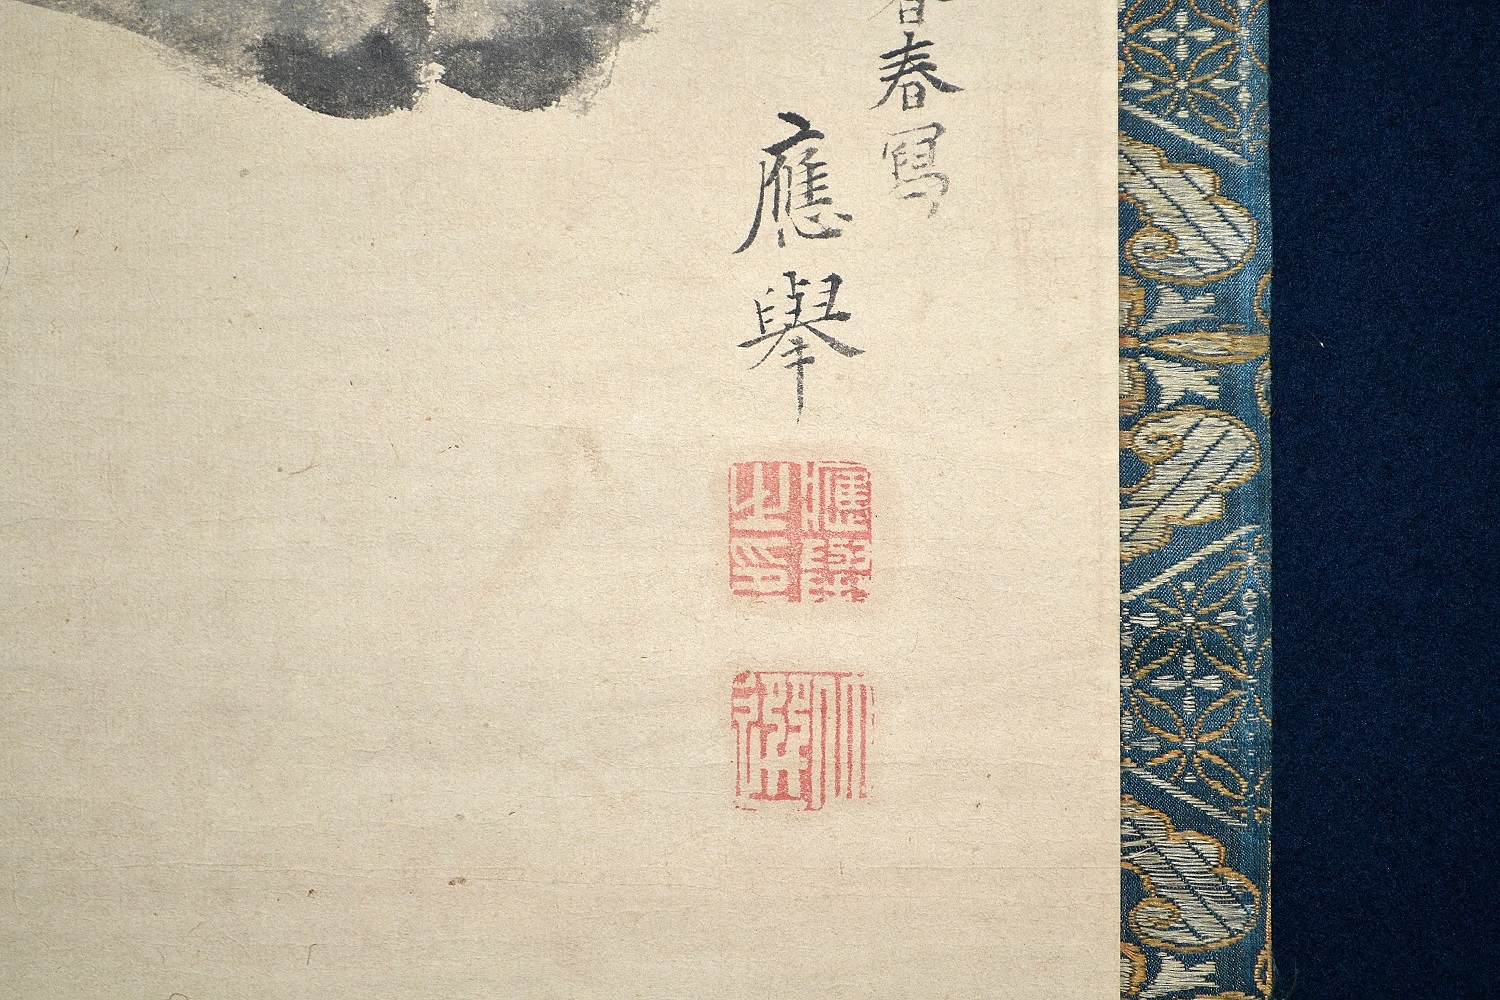 春寫
應舉
應舉之印
仲選